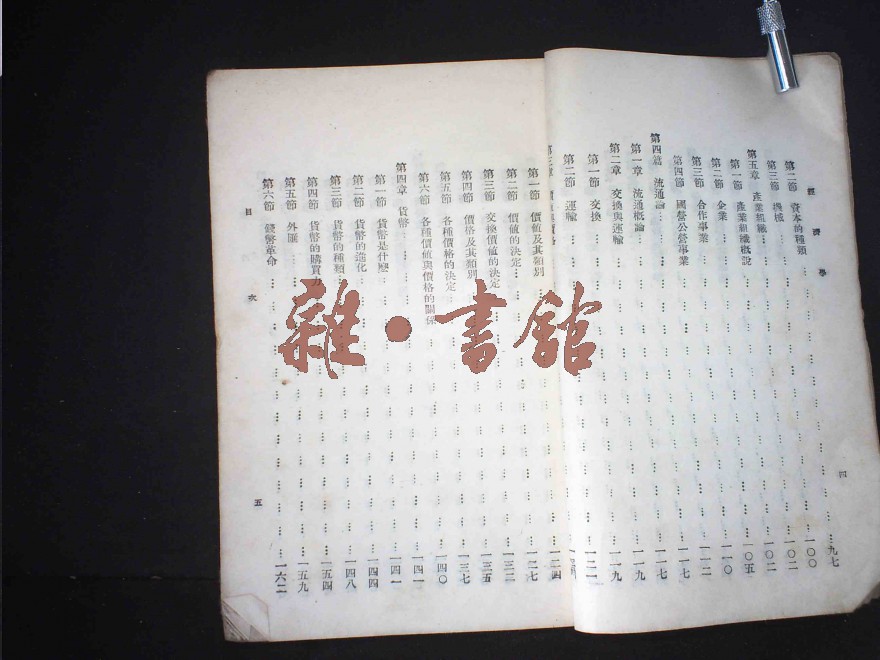 經濟學 四
第二節 資本的種類 … 九七
第三節 機械 … 一〇〇
第五章 產業組織 … 一〇二
第一節 產業組織概說 … 一〇二
第二節 企業 … 一〇五
第三節 合作事業 … 一一〇
第四節 國營公營事業 … 一一二
第四篇 流通論 … 一一七
第一章 流通概論 … 一一七
第二章 交換與運輸 … 一一九
第一節 交換 … 一一九
第二節 運輸 … 一二一
第三章
第一節 價值及其類別 … 一二四
第二節 價值的決定 … 一二七
第三節 交換價值的決定 … 一三二
第四節 價格及其類別 … 一三五
第五節 各種價格的決定 … 一三七
第六節 各種價值與價格的關係 … 一四〇
第四章 貨幣 … 一四一
第一節 貨幣是什麼 … 一四一
第二節 貨幣的進化 … 一四四
第三節 貨幣的種類 … 一四八
第四節 貨幣的購買力 … 一五四
第五節 外匯 … 一五九
第六節 錢幣革命 … 一六二
目次 五
雜·書館